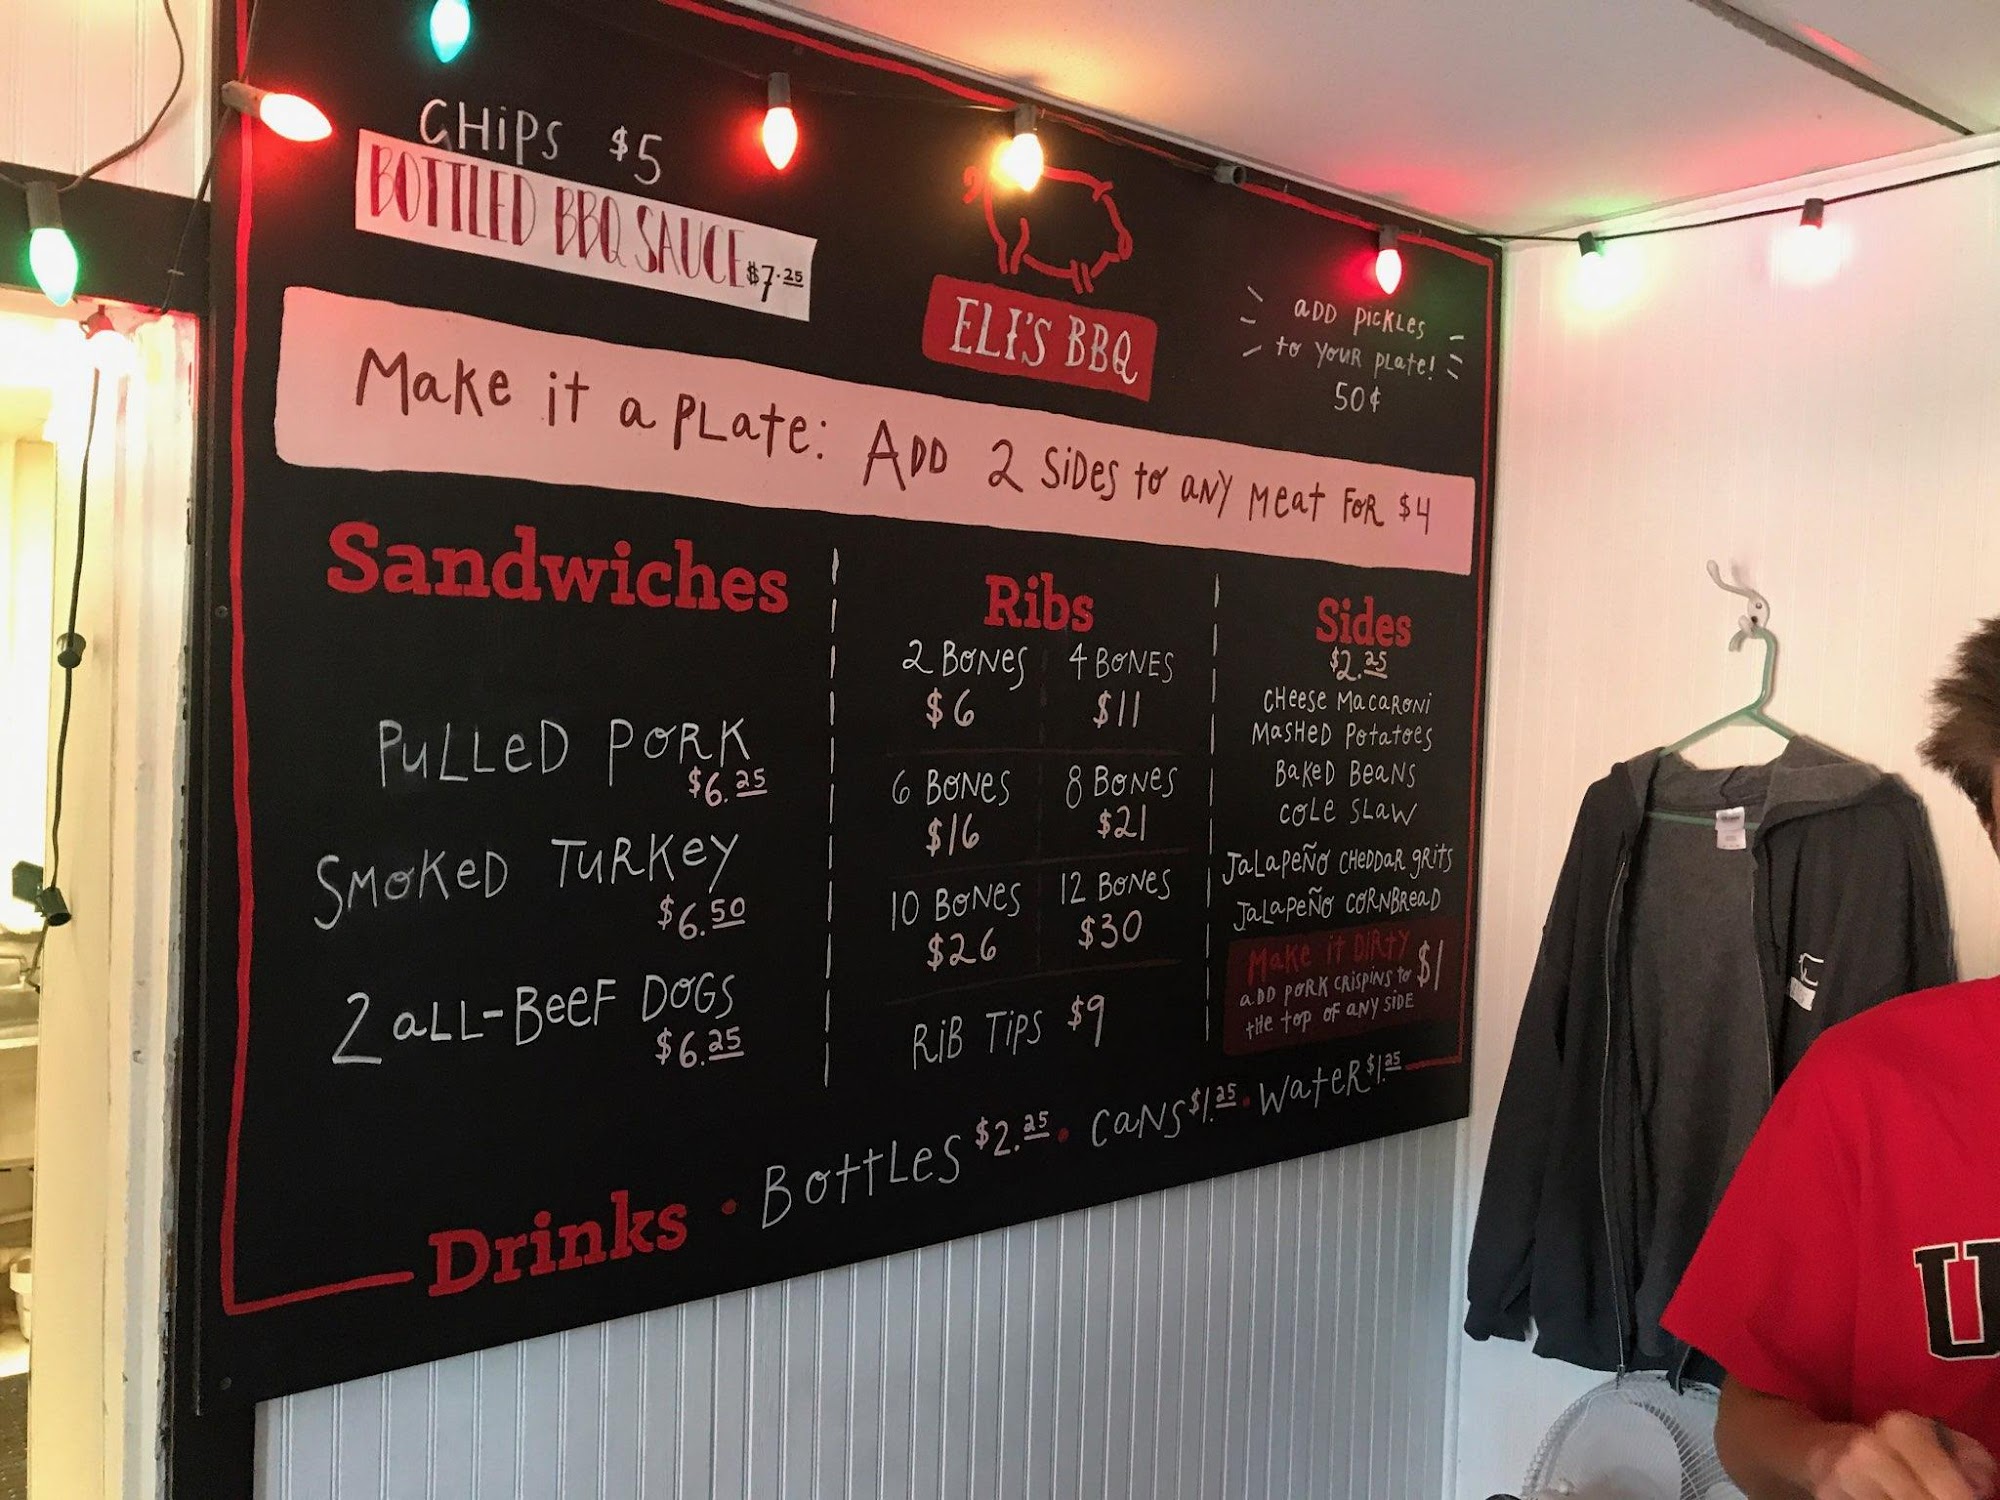 CHIPS $5
BOTTLED BBQ SAUCE $7.25
ELI'S BBQ
ADD PICKLES
to YOUR PLATE!
50¢
Make it a PLATE: ADD 2 SIDES to ANY MEAT FOR $4
Sandwiches
PULLED PORK
$6.25
SMOKED TURKEY
$6.50
2 ALL-BEEF DOGS
$6.25
Ribs
2 BONES
$6
4 BONES
$11
6 BONES
$16
8 BONES
$21
10 BONES
$26
12 BONES
$30
RIB TIPS $9
Sides
$2.25
CHEESE MACARONI
MASHED POTATOES
BAKED BEANS
COLE SLAW
JALAPEÑO CHEDDAR GRITS
JALAPEÑO CORNBREAD
Make it DIRTY
ADD PORK CRISPINS to $1
the top OF ANY SIDE
Drinks • BOTTLES $2.25 • CANS $1.25 • WATER $1.25
U